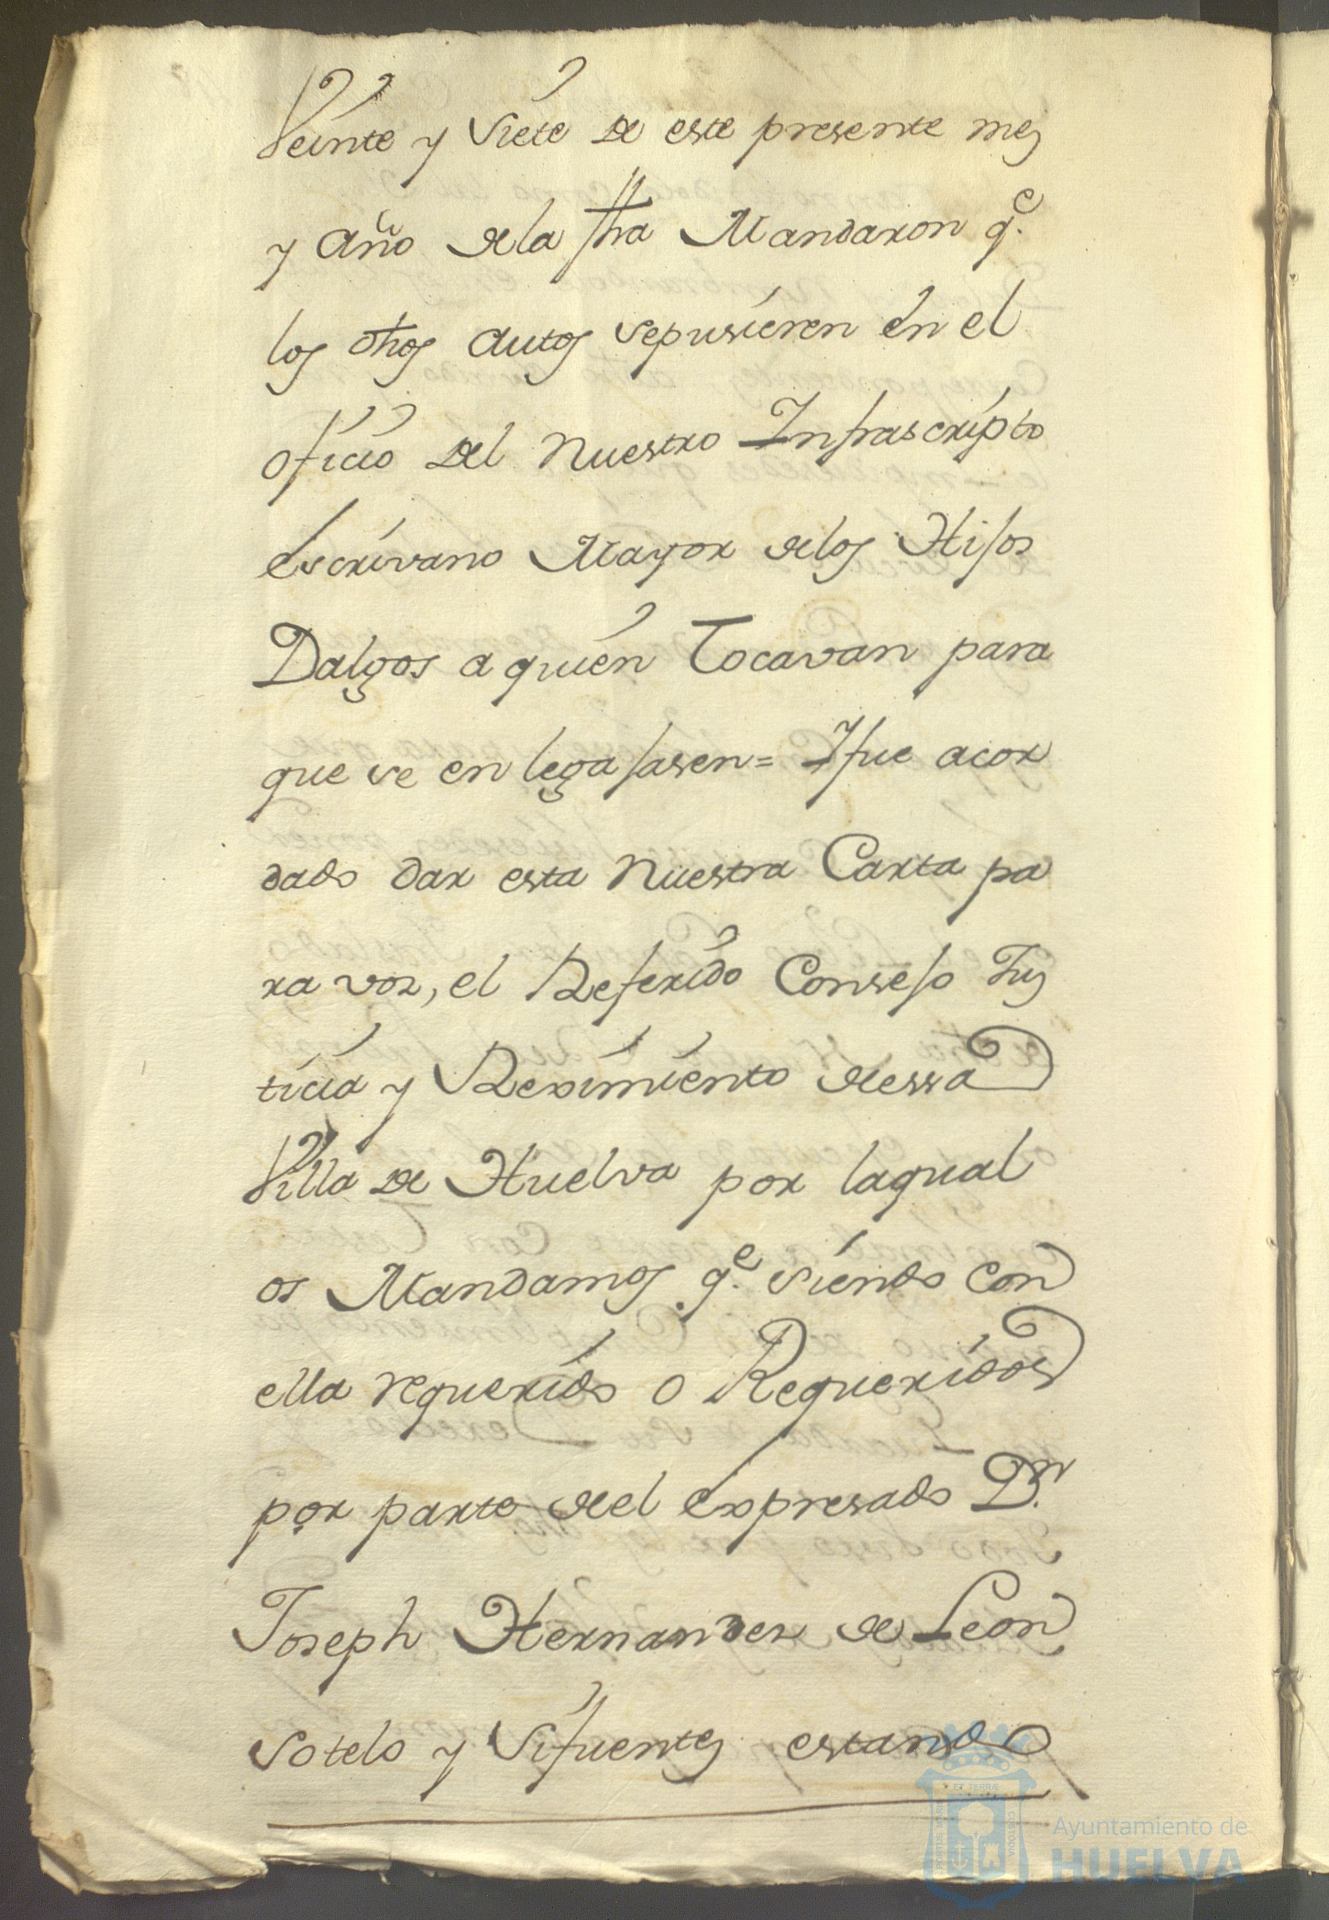 Veinte y Siete de este presente mes
y año dela fha Mandaron q.e
los dhos autos sepusieren en el
oficio del nuestro Infrascripto
escrivano Mayor delos Hijos
Dalgos a quien Tocavan para
que se en legajasen= Yfue acor
dado dar esta nuestra Carta pa
ra vos, el Referido Consejo Jus
ticia y Reximiento dessa
Villa de Huelva por laqual
os Mandamos q.e siendo con
ella requerido o Requeridos
por parte deel expresado D.n
Joseph Hernandez de Leon
Sotelo y Sifuentes estando
Ayuntamiento de
HUELVA